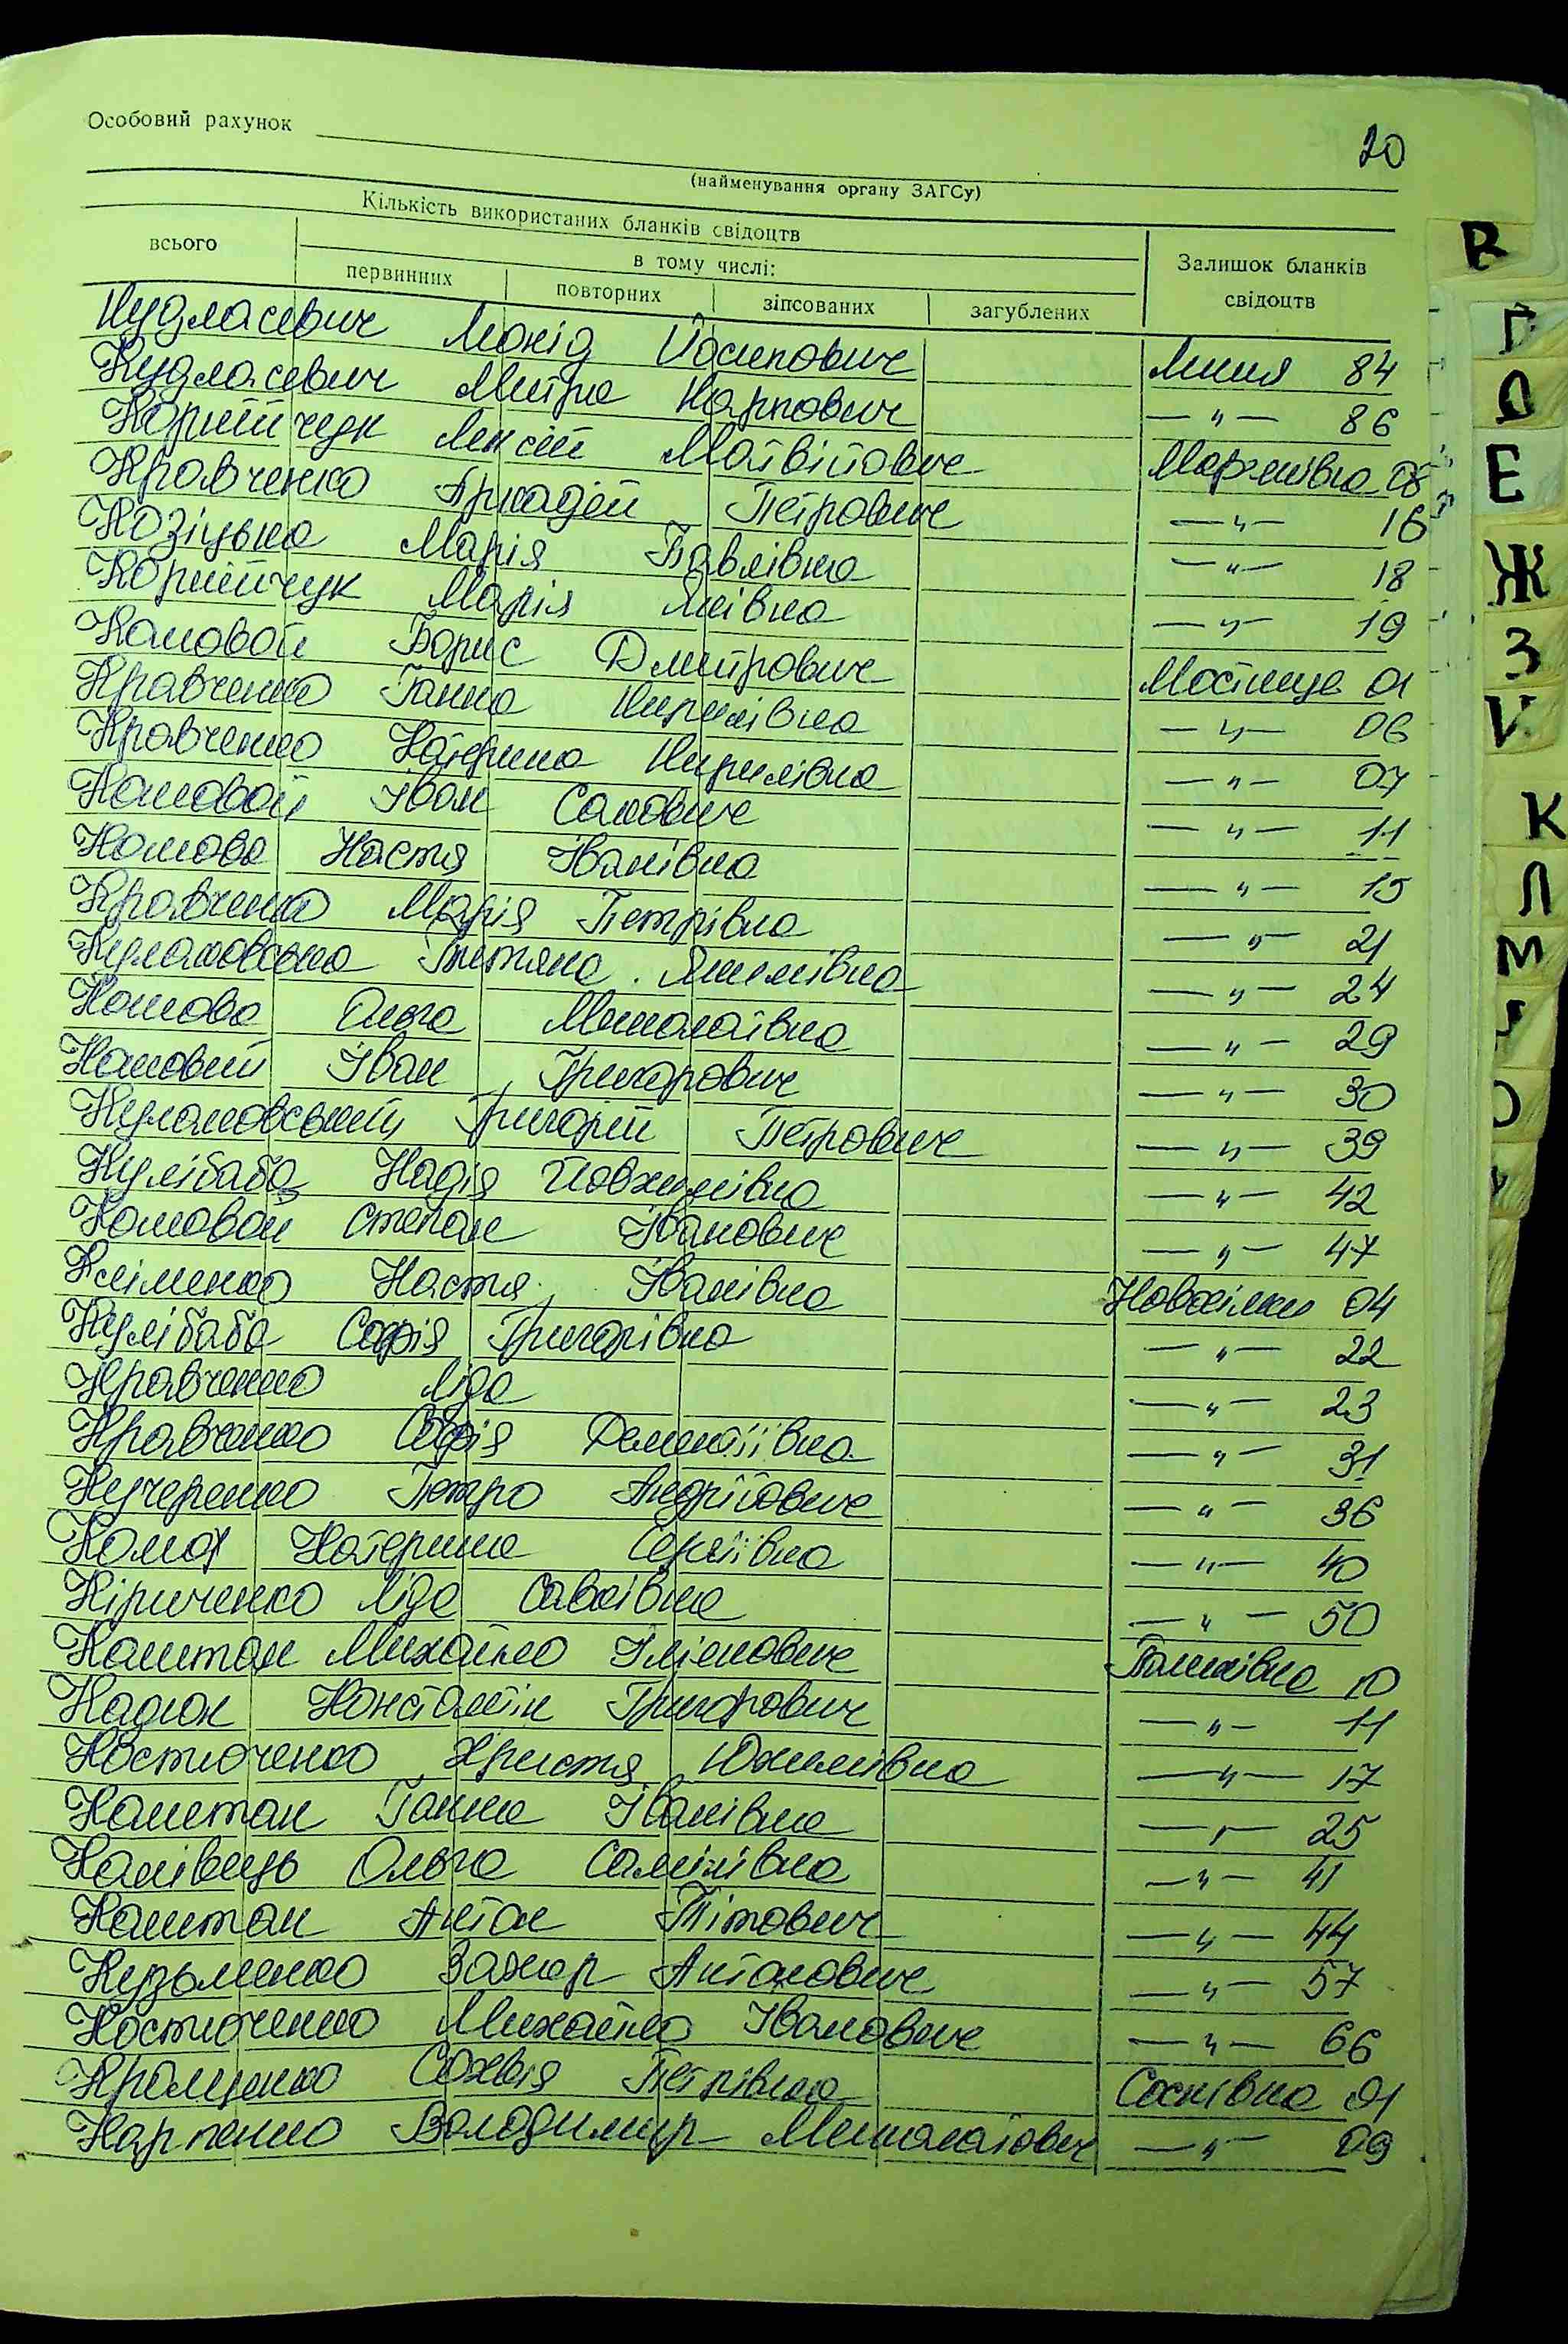 20
Особовий рахунок
(найменування органу ЗАГСу)
Кількість використаних бланків свідоцтв
всього
в тому числі:
Залишок бланків свідоцтв
первинних повторних зіпсованих загублених
Кудласевич Леонід Йосипович Липня 84
Кудласевич Митро Карпович —„— 86
Корнійчук Лексій Матвійович Мар'янівка 08
Кравченко Аркадій Петрович —„— 16
Козіцька Марія Павлівна —„— 18
Корнійчук Марія Яківна —„— 19
Комовой Борис Дмитрович Мостище 01
Кравченко Ганна Кирилівна —„— 06
Кравченко Катерина Кирилівна —„— 07
Комовой Іван Савович —„— 11
Комова Настя Іванівна —„— 15
Кравченко Марія Петрівна —„— 21
Кулаковська Тетяна —„— 24
Комова Ольга Миколаївна —„— 29
Комовий Іван Григорович —„— 30
Кулаковський Григорій Петрович —„— 39
Кулібаба Надія Йовхимівна —„— 42
Комовой Степан Іванович —„— 47
Кліменко Настя Іванівна Новосілки 04
Кулібаба Софія Григорівна —„— 22
Кравченко Ліда —„— 23
Кравченко Софія Дементіївна —„— 31
Кучеренко Петро Андрійович —„— 36
Катерина Сергіївна —„— 40
Кіриченко Ліда Савківна —„— 50
Каштан Михайло Юхимович 10
Константін Григорович —„— 11
Костюченко Христя Юхимівна —„— 17
Каштан Ганна Іванівна —„— 25
Канівець Ольга —„— 41
Каштан Антон Тітович —„— 44
Кузьменко Захар Антонович —„— 57
Костюченко Михайло Іванович —„— 66
Кращенко Сохвія Петрівна Соснівка 01
Карпенко Володимир Миколайович —„— 09
В
Г
Д
Е
Ж
З
И
К
Л
М